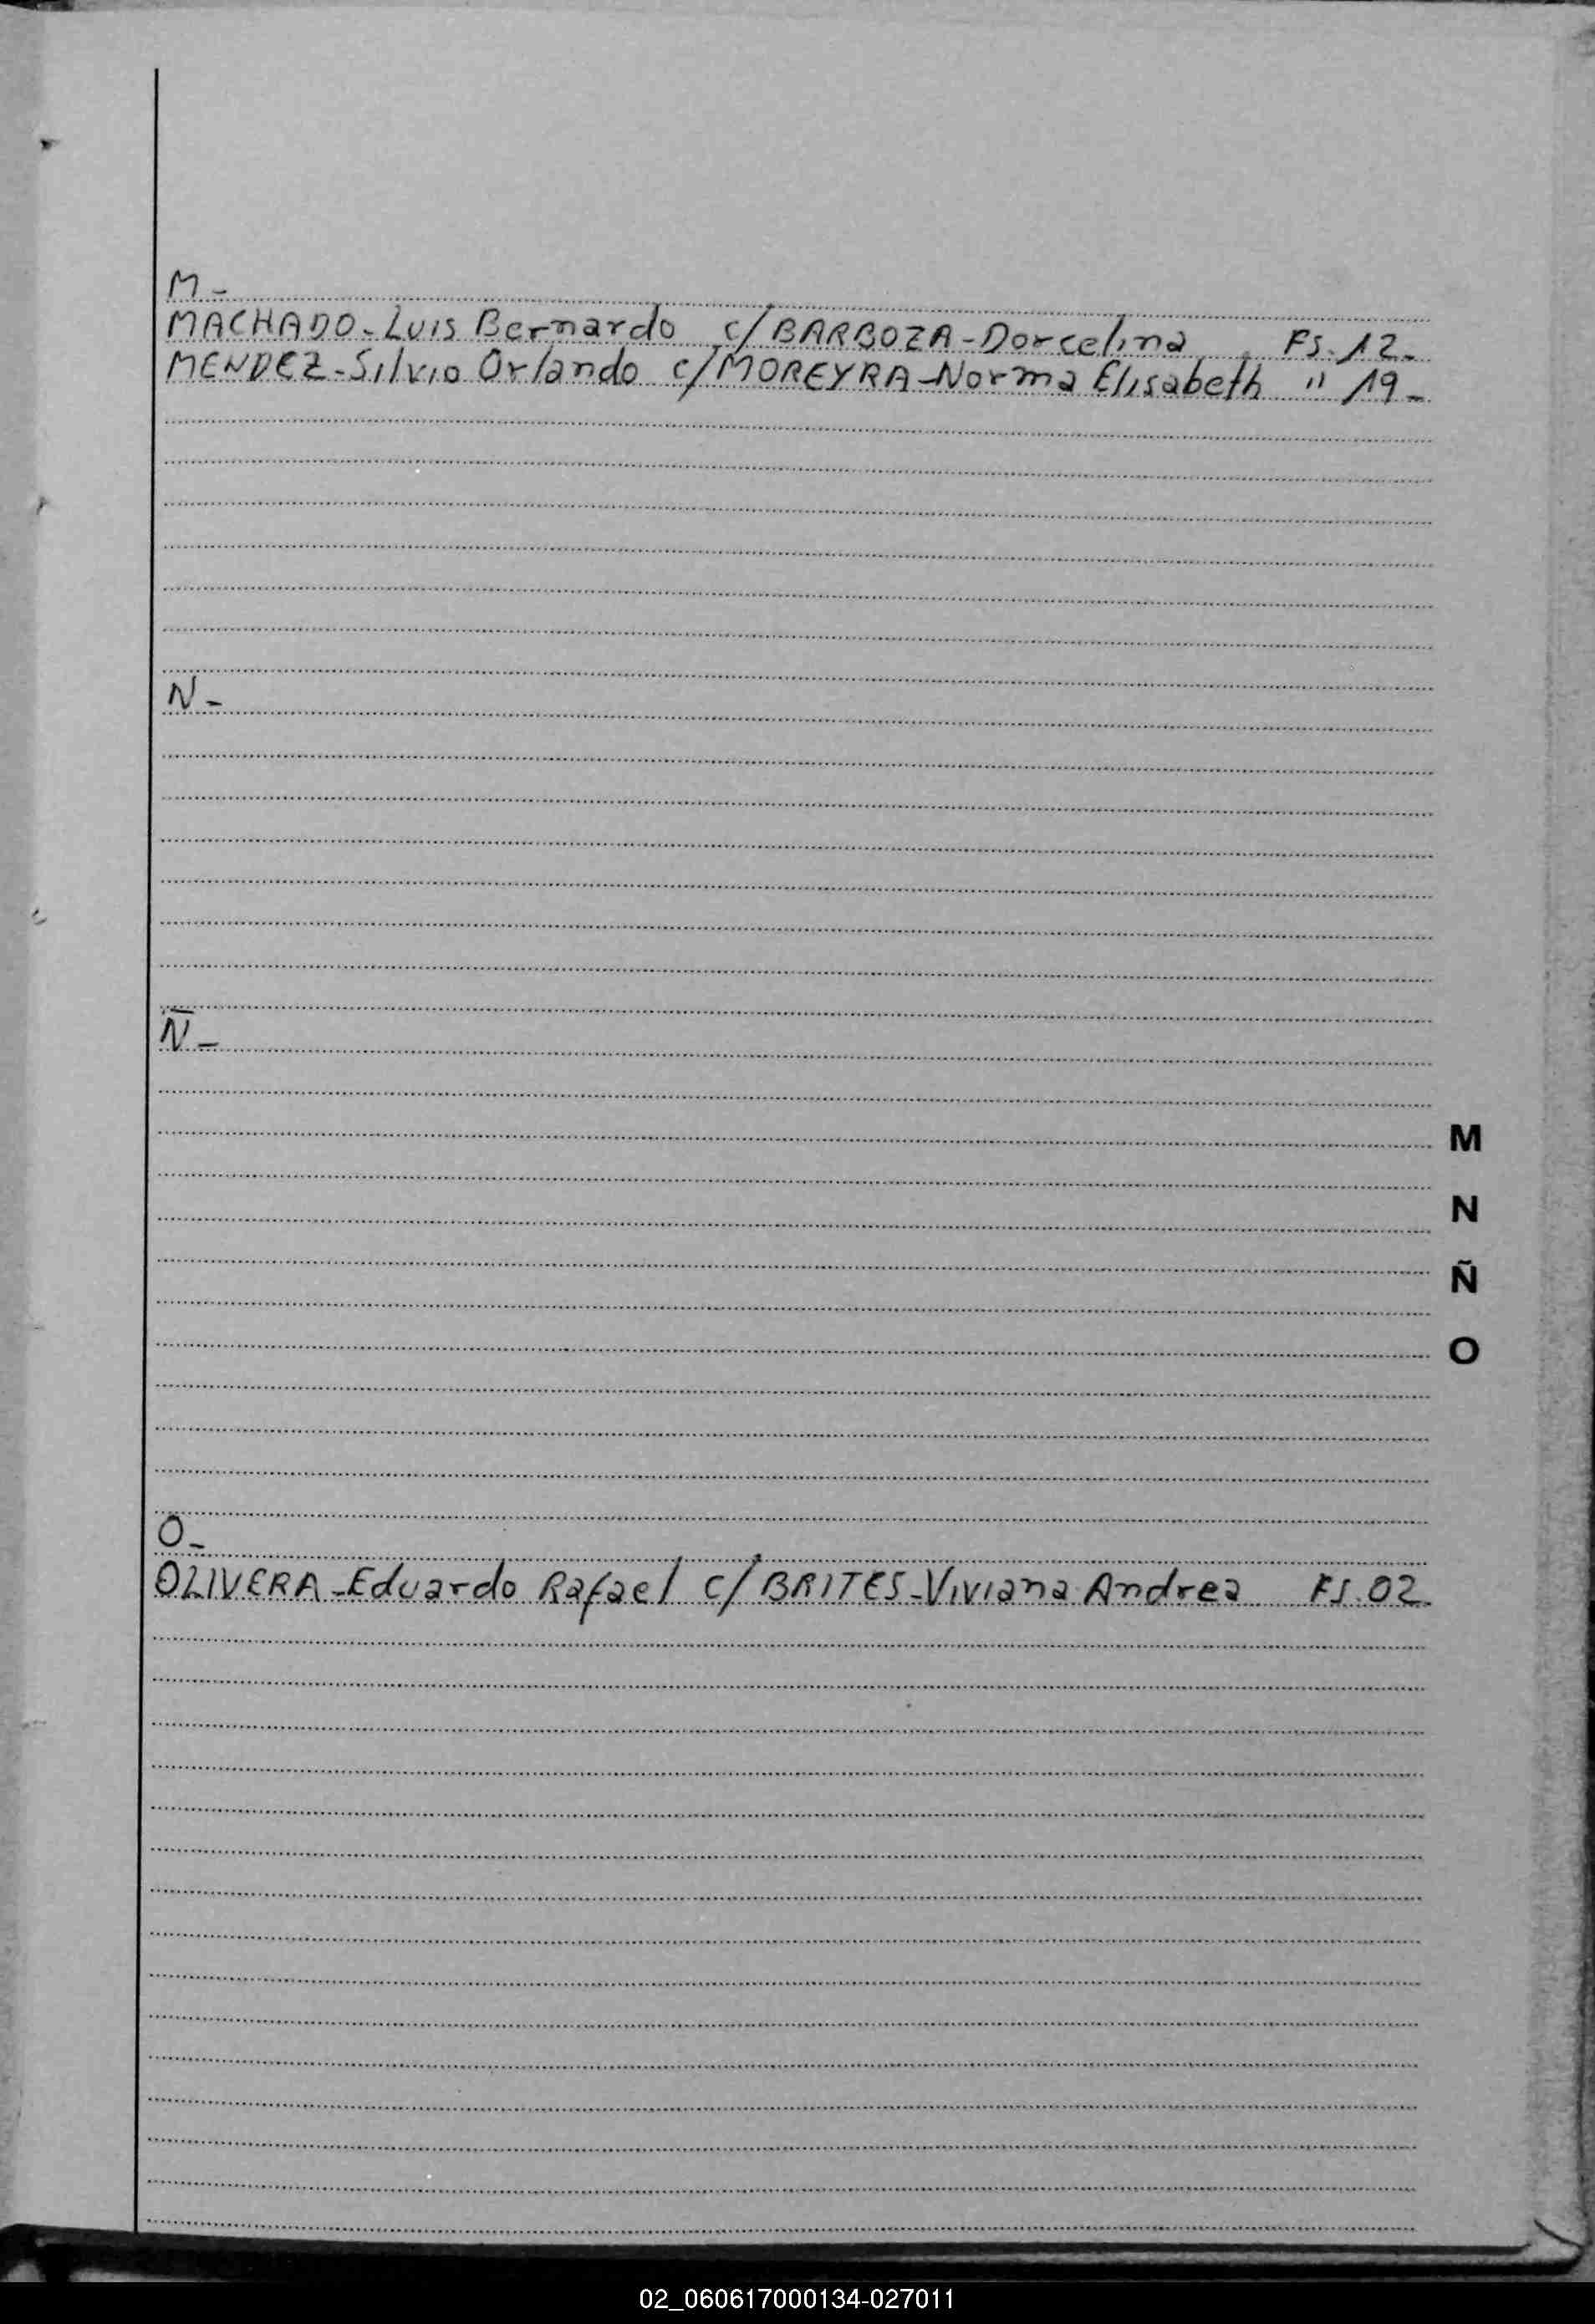 M-
MACHADO-Luis Bernardo c/BARBOZA-Dorcelina Fs.12-
MENDEZ-Silvio Orlando c/MOREYRA-Norma Elisabeth " 19-
N-
Ñ-
M
N
Ñ
O
O-
OLIVERA-Eduardo Rafael c/BRITES-Viviana Andrea Fs.02-
02_060617000134-027011